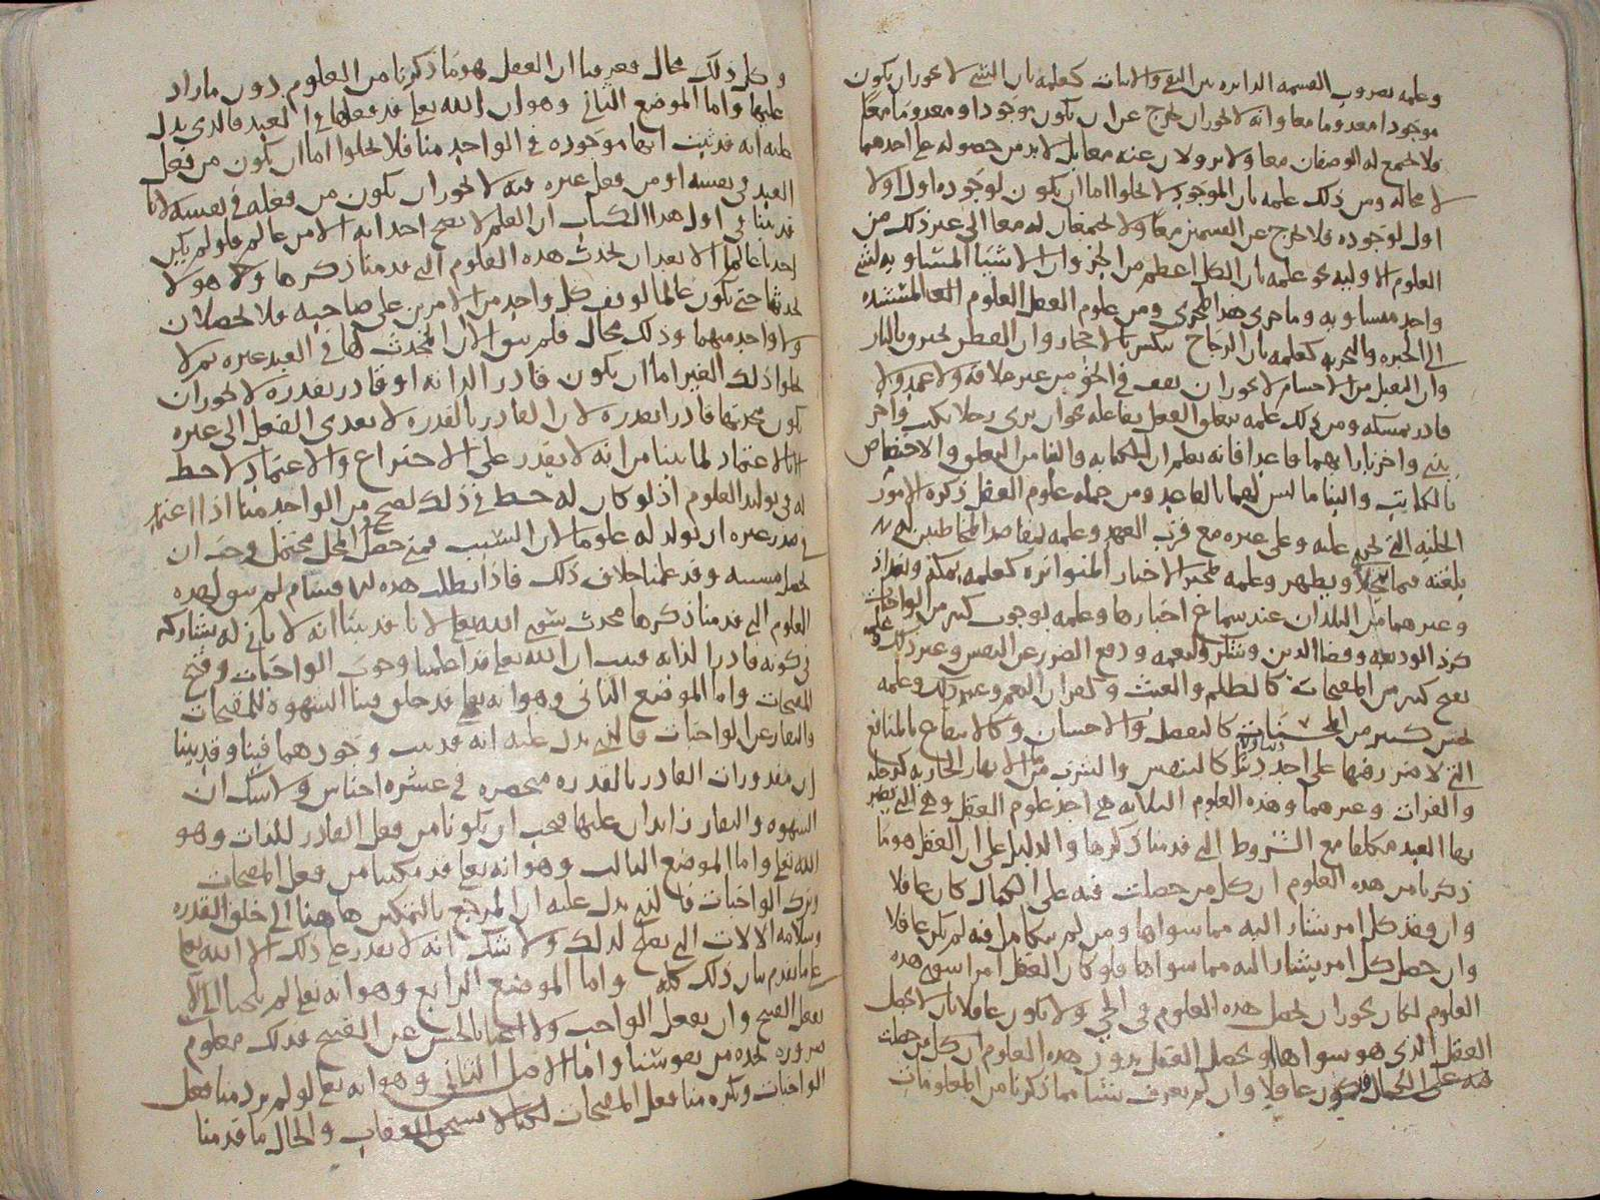 وعلمه بضروب القسمه الدايره بين النفي والاثبات كعلمه بان الشي لا يجوز ان يكون
موجودا معدوما معا وانه لا يجوز ان يخرج عن ان يكون موجودا ومعدوما معا
فلا تجتمع له الوصفان معا ولا يزولان عنه معا بل لابد من حصوله على احدهما
لا محاله ومن ذلك علمه بان الموجود لا يخلوا اما ان يكون لوجوده اول او لا
اول لوجوده فلا يخرج عن القسمين معا ولا يجتمعان له معا الى غير ذلك من
العلوم الاوليه نحو علمه بان الكل اعظم من الجزو وان الاشيا المتساويه لشي
واحد متساويه وما جرى هذا المجرى ومن علوم العقل العلوم المستنده
الى الخبره والتجربه كعلمه بان الزجاج ينكسر بالاحجار وان القطن يحترق بالنار
وان الثقيل من الاجسام لا يجوز ان يقف في الجو من غير علاقه ولا عمد ولا
قادر يمسكه ومن ذلك علمه بتعلق الفعل بفاعله نحو ان يرى رجلا يكتب واخر
يبني واخر بازايهما قاعدا فانه يعلم ان للكتابه والبنا من التعلق والاختصاص
بالكاتب والبنا ما ليس لهما بالقاعد ومن جمله علوم العقل ذكره الامور
الجليه التي تجري عليه وعلى غيره مع قرب العهد وعلمه لمقاصد المخاطبين له
بلغته فيما يتجلا ويظهر وعلمه لمخبر الاخبار المتواتره كعلمه بمكه وبغداذ
وغيرهما من البلدان عند سماع اخبارها وعلمه بوجوب كثير من الواجبات
كرد الوديعه وقضا الدين وشكر النعمه ودفع الضرر عن النفس وغير ذلك وعلمه
بقبح كثير من المقبحات كالظلم والعبث وكفران النعم وغير ذلك وعلمه
بحسن كثير من المحسنات كالتفضل والاحسان وكالانتفاع بالمنافع
التي لا ضرر فيها على احد كالتنفس والشرب من الانهار الجاريه كدجله
والفرات وغيرهما وهذه العلوم الثلاثه هي اخر علوم العقل وهي التي يصير
بها العبد مكلفا مع الشروط التي قدمنا ذكرها والدليل على ان العقل هو ما
ذكرنا من هذه العلوم ان كل من حصلت فيه على الكمال كان عاقلا
وان فقد كل امر يشار اليه مما سواها ومن لم تتكامل فيه لم يكن عاقلا
وان حصل كل امر يشار اليه مما سواها فلو كان العقل امرا سوى هذه
العلوم لكان يجوز ان تحصل هذه العلوم في الحي ولا يكون عاقلا بان لا يحصل
العقل الذي هو سواها او يحصل العقل بدون هذه العلوم ان كل من حصلت
فيه على الكمال فيكون عاقلا وان لم يعرف شيا مما ذكرنا من المعلومات
وكل ذلك محال فعرفنا ان العقل هو ما ذكرنا من العلوم دون ما زاد
عليها واما الموضع الثاني وهو ان الله تعالى قد فعلها في العبد فالذي يدل
عليه انه قد ثبت انها موجوده في الواحد منا فلا يخلوا اما ان يكون من فعل
العبد في نفسه او من فعل غيره فيه لا يجوز ان يكون من فعله في نفسه لانا
قد بينا في اول هذا الكتاب ان العلم لا يصح احداثه الا من عالم فلو لم يكن
احدنا عالما الا بعد ان يحدث هذه العلوم التي قدمنا ذكرها ولا هو لا
يحدثها حتى يكون عالما لوقف كل واحد من الامرين على صاحبه فلا يحصلان
ولا واحد منهما وذلك محال فلم يبق الا ان المحدث لها في العبد غيره ثم لا
يخلوا ذلك الغير اما ان يكون قادرا لذاته او قادر بقدره لا يجوز ان
يكون محدثها قادرا بقدره لان القادر بالقدره لا يعدي الفعل الى غيره
الا بالاعتماد لما بينا من انه لا يقدر على الاختراع والاعتماد لا حظ
له في توليد العلوم اذ لو كان له حظ في ذلك لصح من الواحد منا اذا اعتمد
في صدر غيره ان يولد له علوما لان السبب متى حصل والمحل محتمل وجب ان
يحصل مسببه وقد علمنا خلاف ذلك فاذا بطلت هذه الاقسام لم يبق لهذه
العلوم التي قدمنا ذكرها محدث سوى الله تعالى لانا قد بينا انه لا ثاني له يشاركه
في كونه قادرا لذاته فثبت ان الله تعالى قد اعلمنا وجوب الواجبات وقبح
المقبحات واما الموضع الثاني وهو انه تعالى قد خلق فينا الشهوه للمقبحات
والنفار عن الواجبات فالذي يدل عليه انه قد ثبت وجودهما فينا وقد بينا
ان مقدورات القادر بالقدره منحصره في عشره اجناس ولا شك ان
الشهوه والنفار زايدان عليها فيجب ان يكونا من فعل القادر للذات وهو
الله تعالى واما الموضع الثالث وهو انه تعالى قد مكننا من فعل المقبحات
وترك الواجبات فالذي يدل عليه ان المرجع بالتمكين هاهنا الى خلق القدره
وسلامه الالات التي يصح لذلك ولا شك انه لا يقدر على ذلك الا الله تعالى
على ما تقدم بيان ذلك كله واما الموضع الرابع وهو انه تعالى لم يلجنا الى ان لا
نفعل القبيح وان نفعل الواجب ولا اغنانا بالحسن عن القبيح فذلك معلوم
ضروره نجده من نفوسنا واما الاصل الثاني وهو انه تعالى لو لم يرد منا فعل
الواجبات وكره منا فعل المقبحات لكيلا نستحق العقاب والحال ما قدمنا